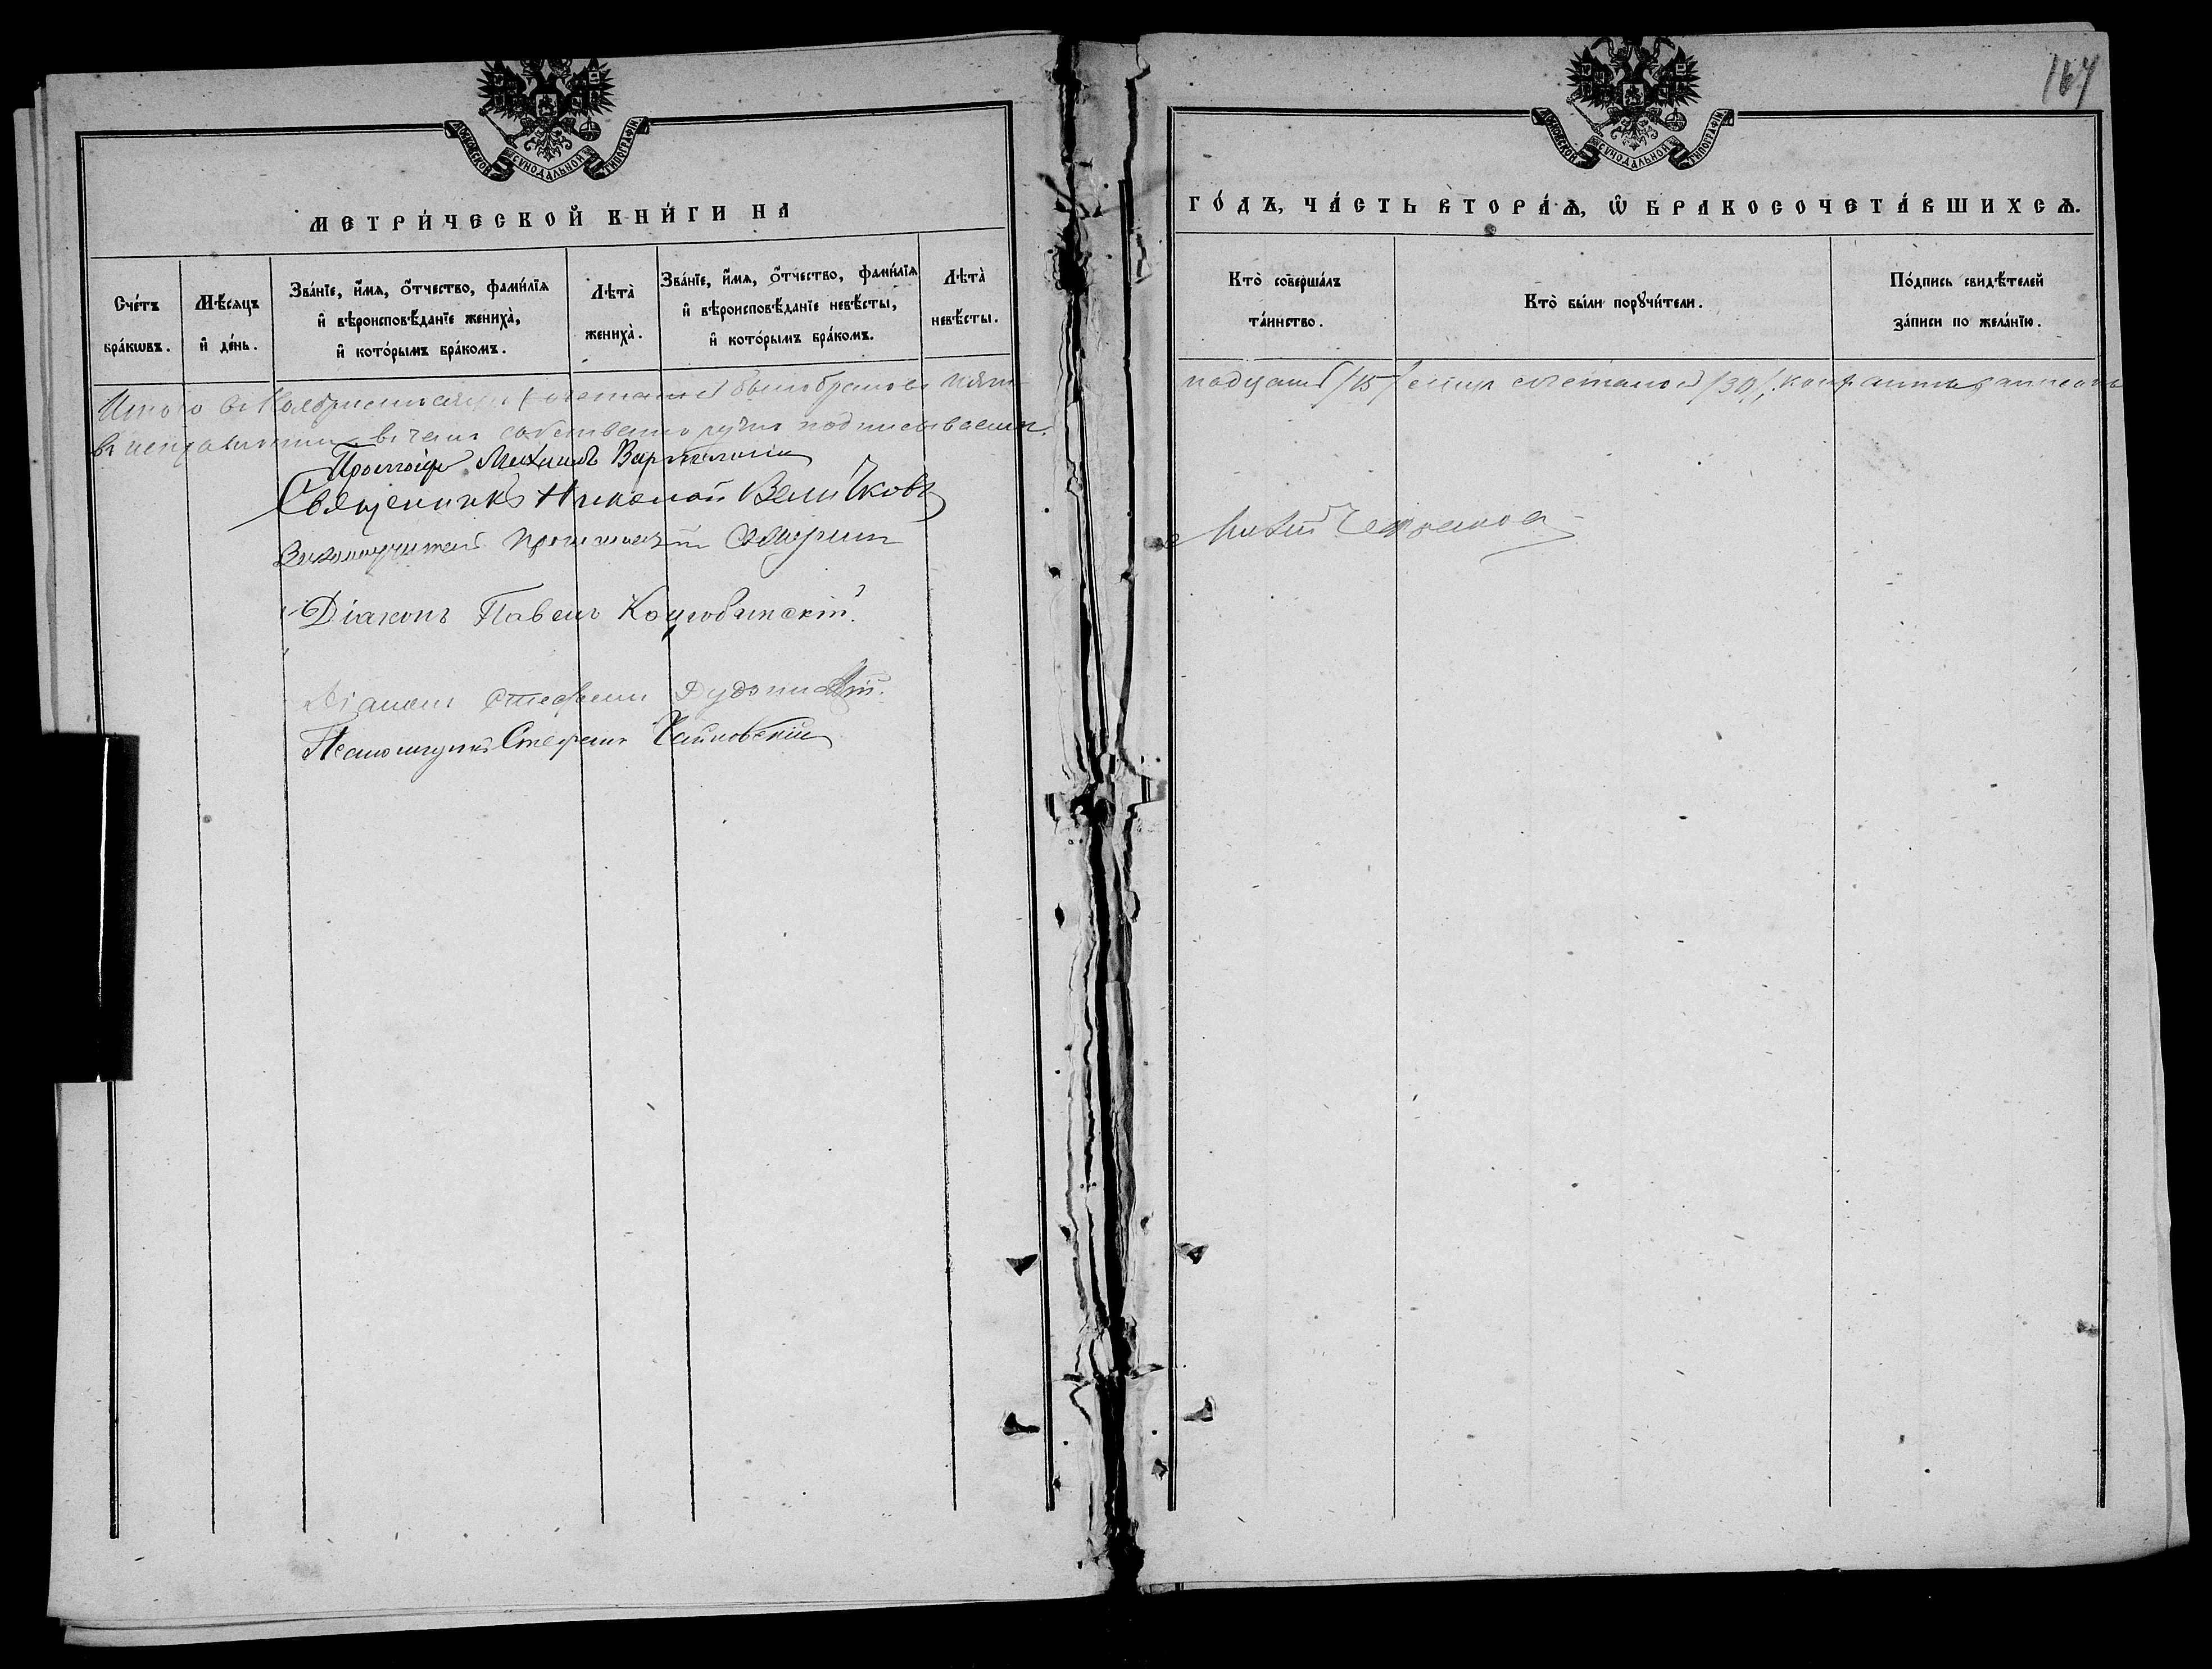 МОСКОВСКОЙ СѴНОДАЛЬНОЙ ТИПОГРАФІИ.
МЕТРИ́ЧЕСКОЙ КНИ́ГИ НА
Сче́тъ бра́кѡвъ.
Мѣ́сяцъ и҆ де́нь.
Зва́нїе, и҆́мя, о҆́тчество, фами́лїя и҆ вѣроисповѣ́данїе жениха̀, и҆ кото́рымъ бра́комъ.
Лѣта̀ жениха̀.
Зва́нїе, и҆́мя, о҆́тчество, фами́лїя и҆ вѣроисповѣ́данїе невѣ́сты, и҆ кото́рымъ бра́комъ.
Лѣта̀ невѣ́сты.
Итого въ Ноябрѣ мѣсяцѣ сочетаній было браковъ пят-
въ чемъ собственноручно подписываемся.
Протоіер. Михаилъ
Священникъ Николай Величковъ
Діаконъ Павелъ Коцюбинскій.
Діаконъ Стефанъ
Псаломщикъ Стефанъ Чайковскій
164
МОСКОВСКОЙ СѴНОДАЛЬНОЙ ТИПОГРАФІИ.
ГО́ДЪ, ЧА́СТЬ ВТОРА́Ѧ, Ѡ҆ БРАКОСОЧЕТА́ВШИХСѦ.
Кто̀ соверша́лъ та́инство.
Кто̀ бы́ли порꙋчи́тели.
По́дпись свидѣ́телей за́писи по жела́нїю.
надцать /15/ лицъ /30/,